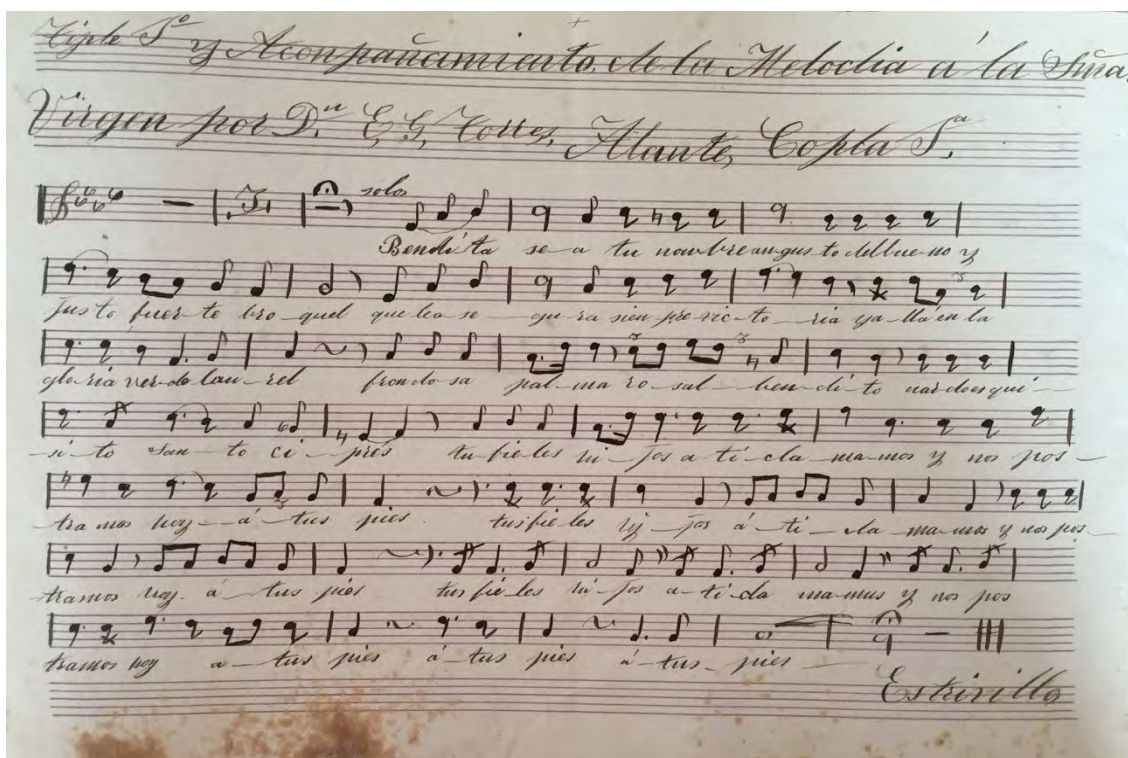 Tiple 1º y Aconpañamiento, de la Melodia á la Sma,
Virgen por Dn. E, G, Cortes, Atante, Copla 1ª,
solo
Bendita se-a tu nombre augus to del bue-no y
jus to fuer-te bro-quel que lea se-gu-ra sien pre vic-to-ria ya-lla en la
glo-ria ver-de lau-rel frondo sa pal-ma ro-sal-ben-di-to nardo es qui-
-si-to San-to ci-pres tu fie les hi-jos a ti cla-ma-mos y nos pos-
-tra mos hoy-á-tus pies tus fie les hj-jos á-ti-cla-ma-mos y nos pos-
-tramos hoy. a-tus pies tus fie-les hi-jos a-ti-cla mamus y nos pos
tramos hoy a-tus pies á-tus pies á-tus-pies-
Estrivillo